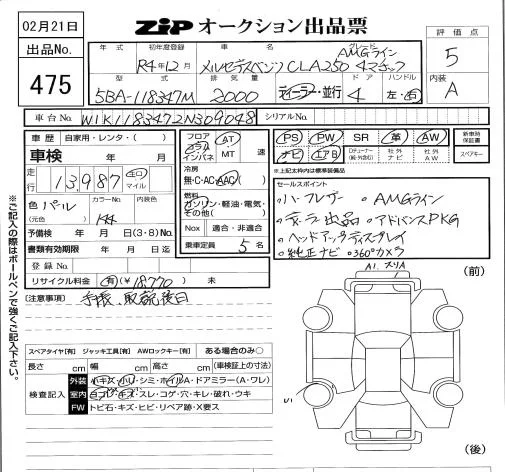 02月21日
出品No.
475
ZIP オークション出品票
評価点
5
内装
A
年式
初年度登録
R4年12月
車名
メルセデスベンツ CLA250 4マチック
グレード
AMGライン
型式
5BA-118347M
排気量
2000
ディーラー・並行
ドア
4
ハンドル
左・右
車台No.
W1K1183472N309048
シリアルNo.
車歴
自家用・レンタ・( )
車検 年 月
走行
13,987
キロ
マイル
色
(元色)
パール
カラーNo.
内装色
予備検 年 月 日(3・8)No.
書類有効期限 年 月 日迄
登録No.
リサイクル料金
有(¥18770) 未
フロア
コラム
インパネ
AT
MT
速
冷房
無・C・AC・AAC
燃料
ガソリン・軽油・電気・
その他( )
Nox
適合・非適合
乗車定員 5 名
PS
PW
SR
革
AW
ナビ
エアB
社外
ナビ
社外
AW
新車時
保証書
スペアキー
※上記太枠内は標準装備品
セールスポイント
・ハーフレザー ・AMGライン
・ディーラー出品 ・アドバンスPKG
・ヘッドアップディスプレイ
・純正ナビ ・360°カメラ
注意事項
手帳、取説後日
※ご記入の際はボールペンで強くご記入下さい。
スペアタイヤ【有】 ジャッキ工具【有】 AWロックキー【有】 ある場合のみ〇
長さ cm 幅 cm 高さ cm (車検証上の寸法)
検査記入
外装
小キズ・小凹・シミ・ホイルA・ドアミラー(A・ワレ)
室内
ヨゴレ・キズ・スレ・コゲ・穴・キレ・破れ・ウキ
FW
トビ石・キズ・ヒビ・リペア跡・X要ス
A1
スリA
(前)
(後)